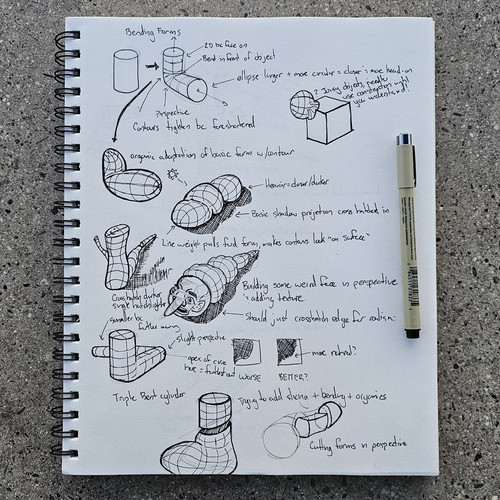 Bending Forms
2D bc face on
Bend in front of object
ellipse larger + more circular = closer = more head-on
Perspective
Contours tighten bc foreshortened
2 Joining objects, people
use construction
organic adaptation of basic form w/contour
Heavier = closer/darker
Basic shadow projection cross hatched in
Line weight pulls fwd form, makes contours look "on surface"
Crosshatch darker
single hatch lighter
Building some weird face in perspective
+ adding texture.
Should just crosshatch edge for realism:
smaller bc
further away
slight perspective
apex of curve
here = furthest out
WORSE
BETTER?
more natural?
Triple Bent cylinder
Trying to add sheria + bending + organics
Cutting forms in perspective